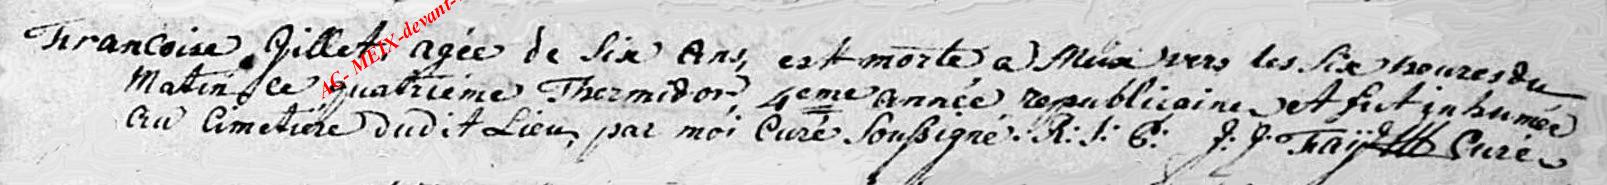 Francoise Jillet, agée de Six Ans, est morte a Meix vers les Six heures du
Matin, ce quatrieme Thermidor, 4eme année republicaine, et fut inhumée
Au Cimetiere dudit Lieu, par moi Curé Soussigné. R: I: P: J: J: Curé
AC- MEIX-devant-